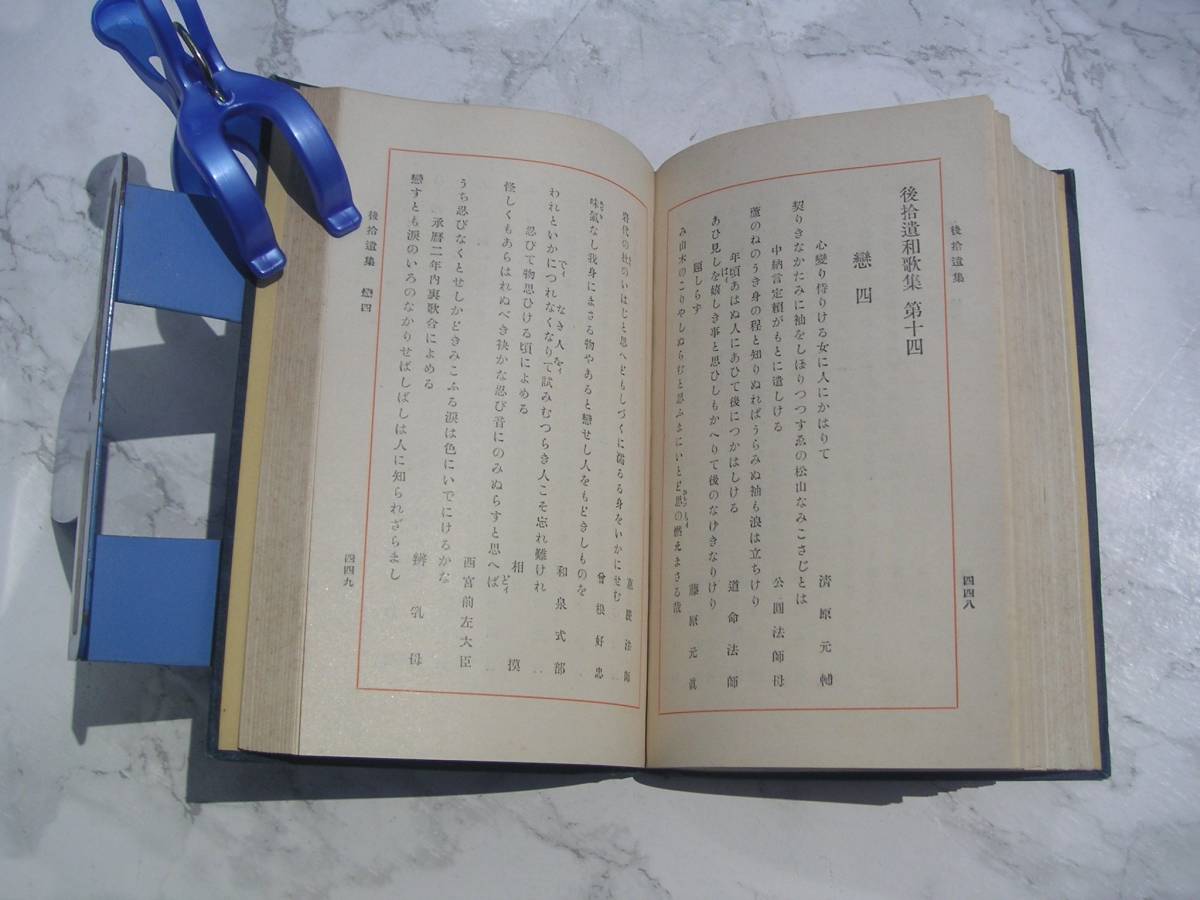 後拾遺集
四四八
後拾遺和歌集 第十四
戀四
心變り侍りける女に人にかはりて
清原元輔
契りきなかたみに袖をしぼりつつすゑの松山なみこさじとは
中納言定頼がもとに遣しける
公圓法師母
蘆のねのうき身の程と知りぬればうらみぬ袖も浪は立ちけり
年頃あはぬ人にあひて後につかはしける
道命法師
あひ見しを嬉しき事と思ひしもかへりて後のなげきなりけり
題しらず
藤原元眞
み山木のこりやしぬらむと思ふまにいとど思の燃えまさる哉
惠慶法師
岩代の杜のいはじと思へどもしづくに濡るる身をいかにせむ
曾根好忠
味氣なし我身にまさる物やあると戀せし人をもどきしものを
和泉式部
われといかにつれなくなりて試みむつらき人こそ忘れ難けれ
忍びて物思ひける頃によめる
相摸
怪しくもあらはれぬべき袂かな忍び音にのみぬらすと思へば
西宮前左大臣
うち忍びなくとせしかどきみこふる涙は色にいでにけるかな
承曆二年內裏歌合によめる
辨乳母
戀すとも涙のいろのなかりせばしばしは人に知られざらまし
後拾遺集 戀四
四四九